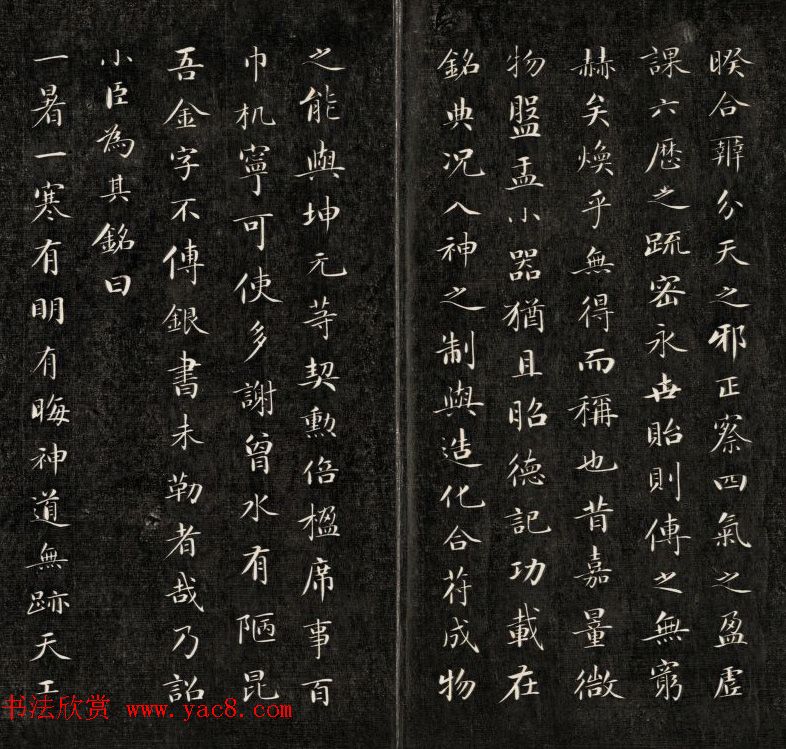 睽合辨分天之邪正察四氣之盈虚
課六歷之疏密永世貽則傳之無窮
赫矣煥乎無得而稱也昔嘉量微
物盤盂小器猶且昭德記功載在
銘典况入神之制與造化合苻成物
之能與坤元等契勲倍楹席事百
巾机寧可使多謝曾水有陋昆
吾金字不傳銀書未勒者哉乃詔
小臣為其銘曰
一暑一寒有明有晦神道無跡天工
书法欣赏 www.yac8.com